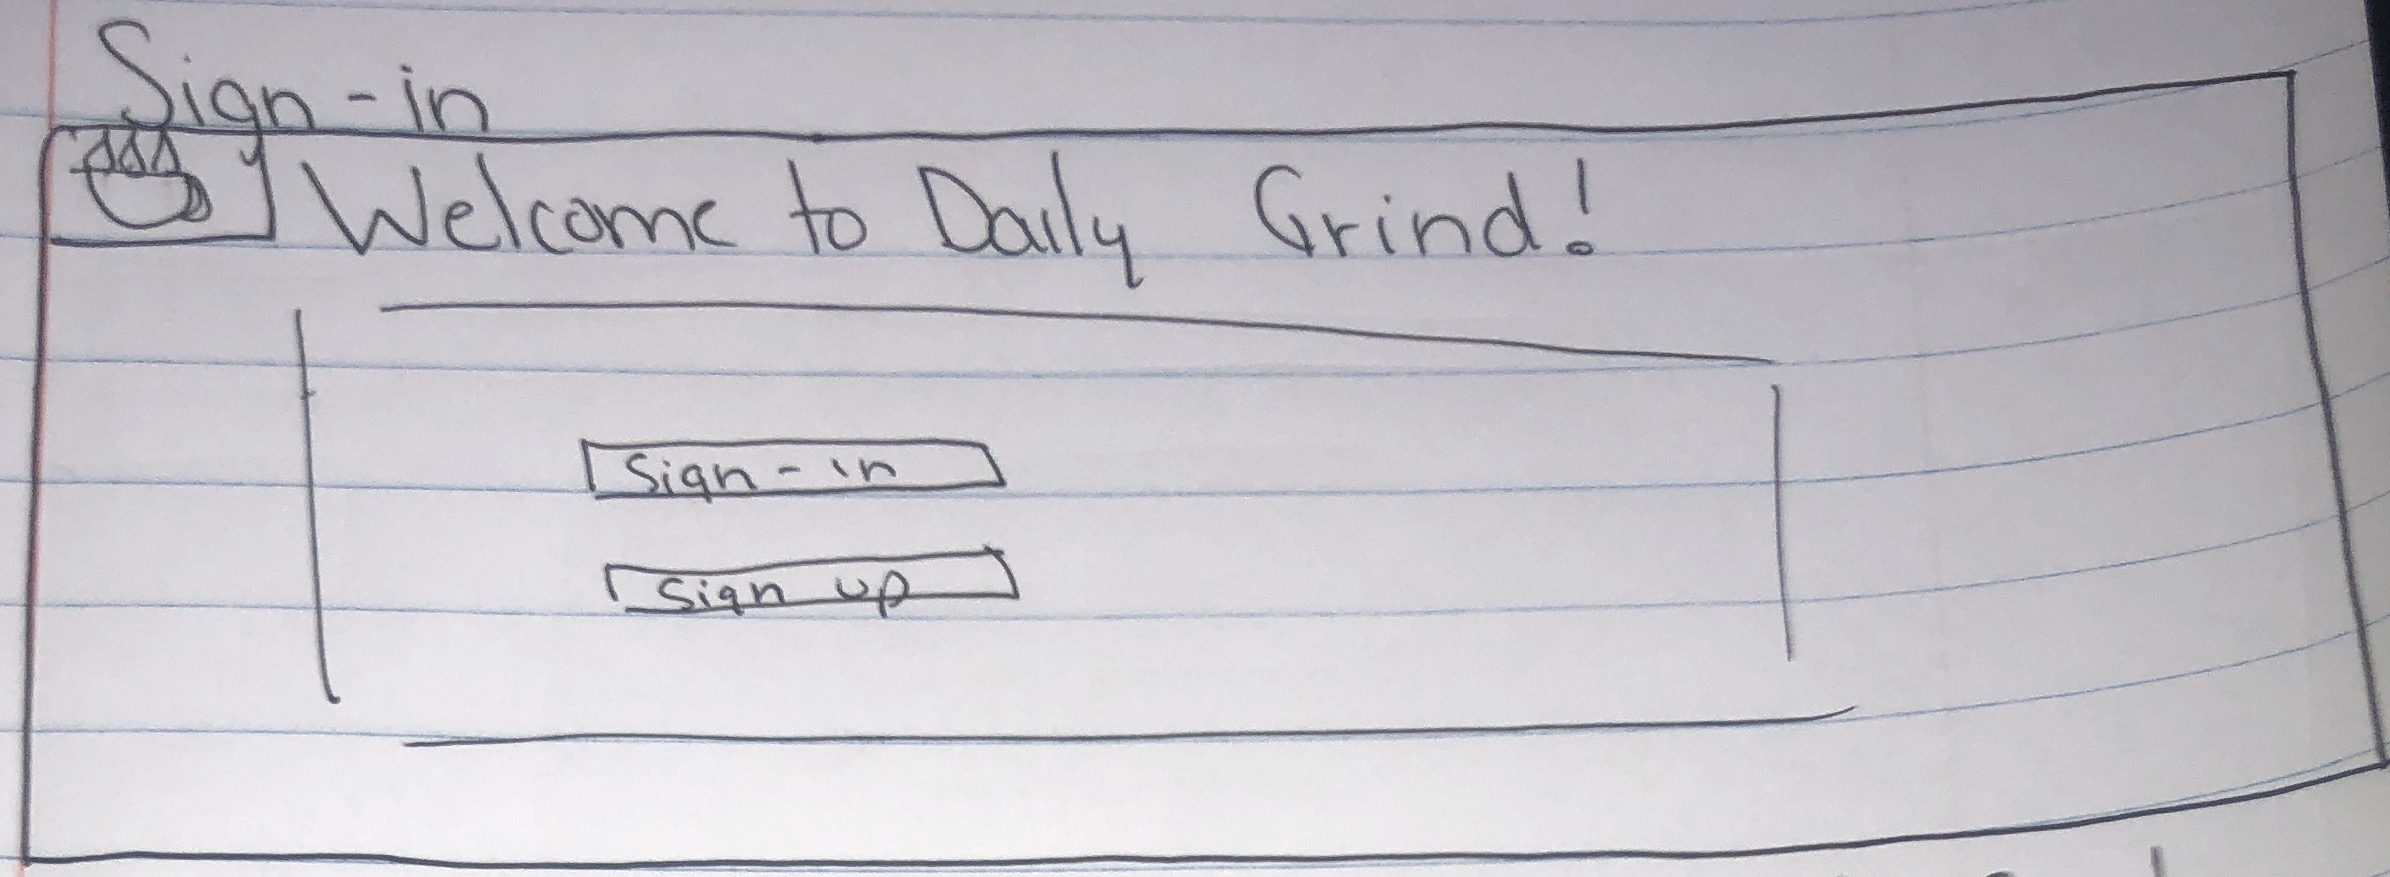 Sign-in
Welcome to Daily Grind!
Sign-in
Sign up